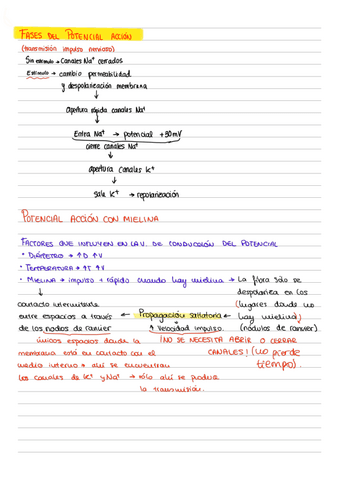 FASES DEL POTENCIAL ACCIÓN
(transmisión impulso nervioso)
Sin estímulo → Canales Na+ cerrados
Estímulo → cambio permeabilidad
y despolarización membrana
↓
apertura rápida canales Na+
↓
Entra Na+ → potencial +30mV
cierre canales Na+
↓
apertura canales K+
↓
Sale K+ → repolarización
POTENCIAL ACCIÓN CON MIELINA
FACTORES QUE INFLUYEN EN LA V. DE CONDUCCIÓN DEL POTENCIAL
• DIÁMETRO → ↑D ↑V
• TEMPERATURA → ↑T ↑V
• MIELINA → impulso + rápido cuando hay mielina → La fibra sólo se
despolariza en los
contacto intermitente
(lugares donde no
entre espacios a través ← Propagación saltatoria ← hay mielina)
de los nodos de ranvier
↑ Velocidad impulso.
(nódulos de ranvier)
únicos espacios donde la
¡NO SE NECESITA ABRIR O CERRAR
membrana está en contacto con el
CANALES! (no pierde
medio interno → ahí se encuentran
tiempo).
los canales de K+ y Na+ → sólo ahí se produce
la transmisión.